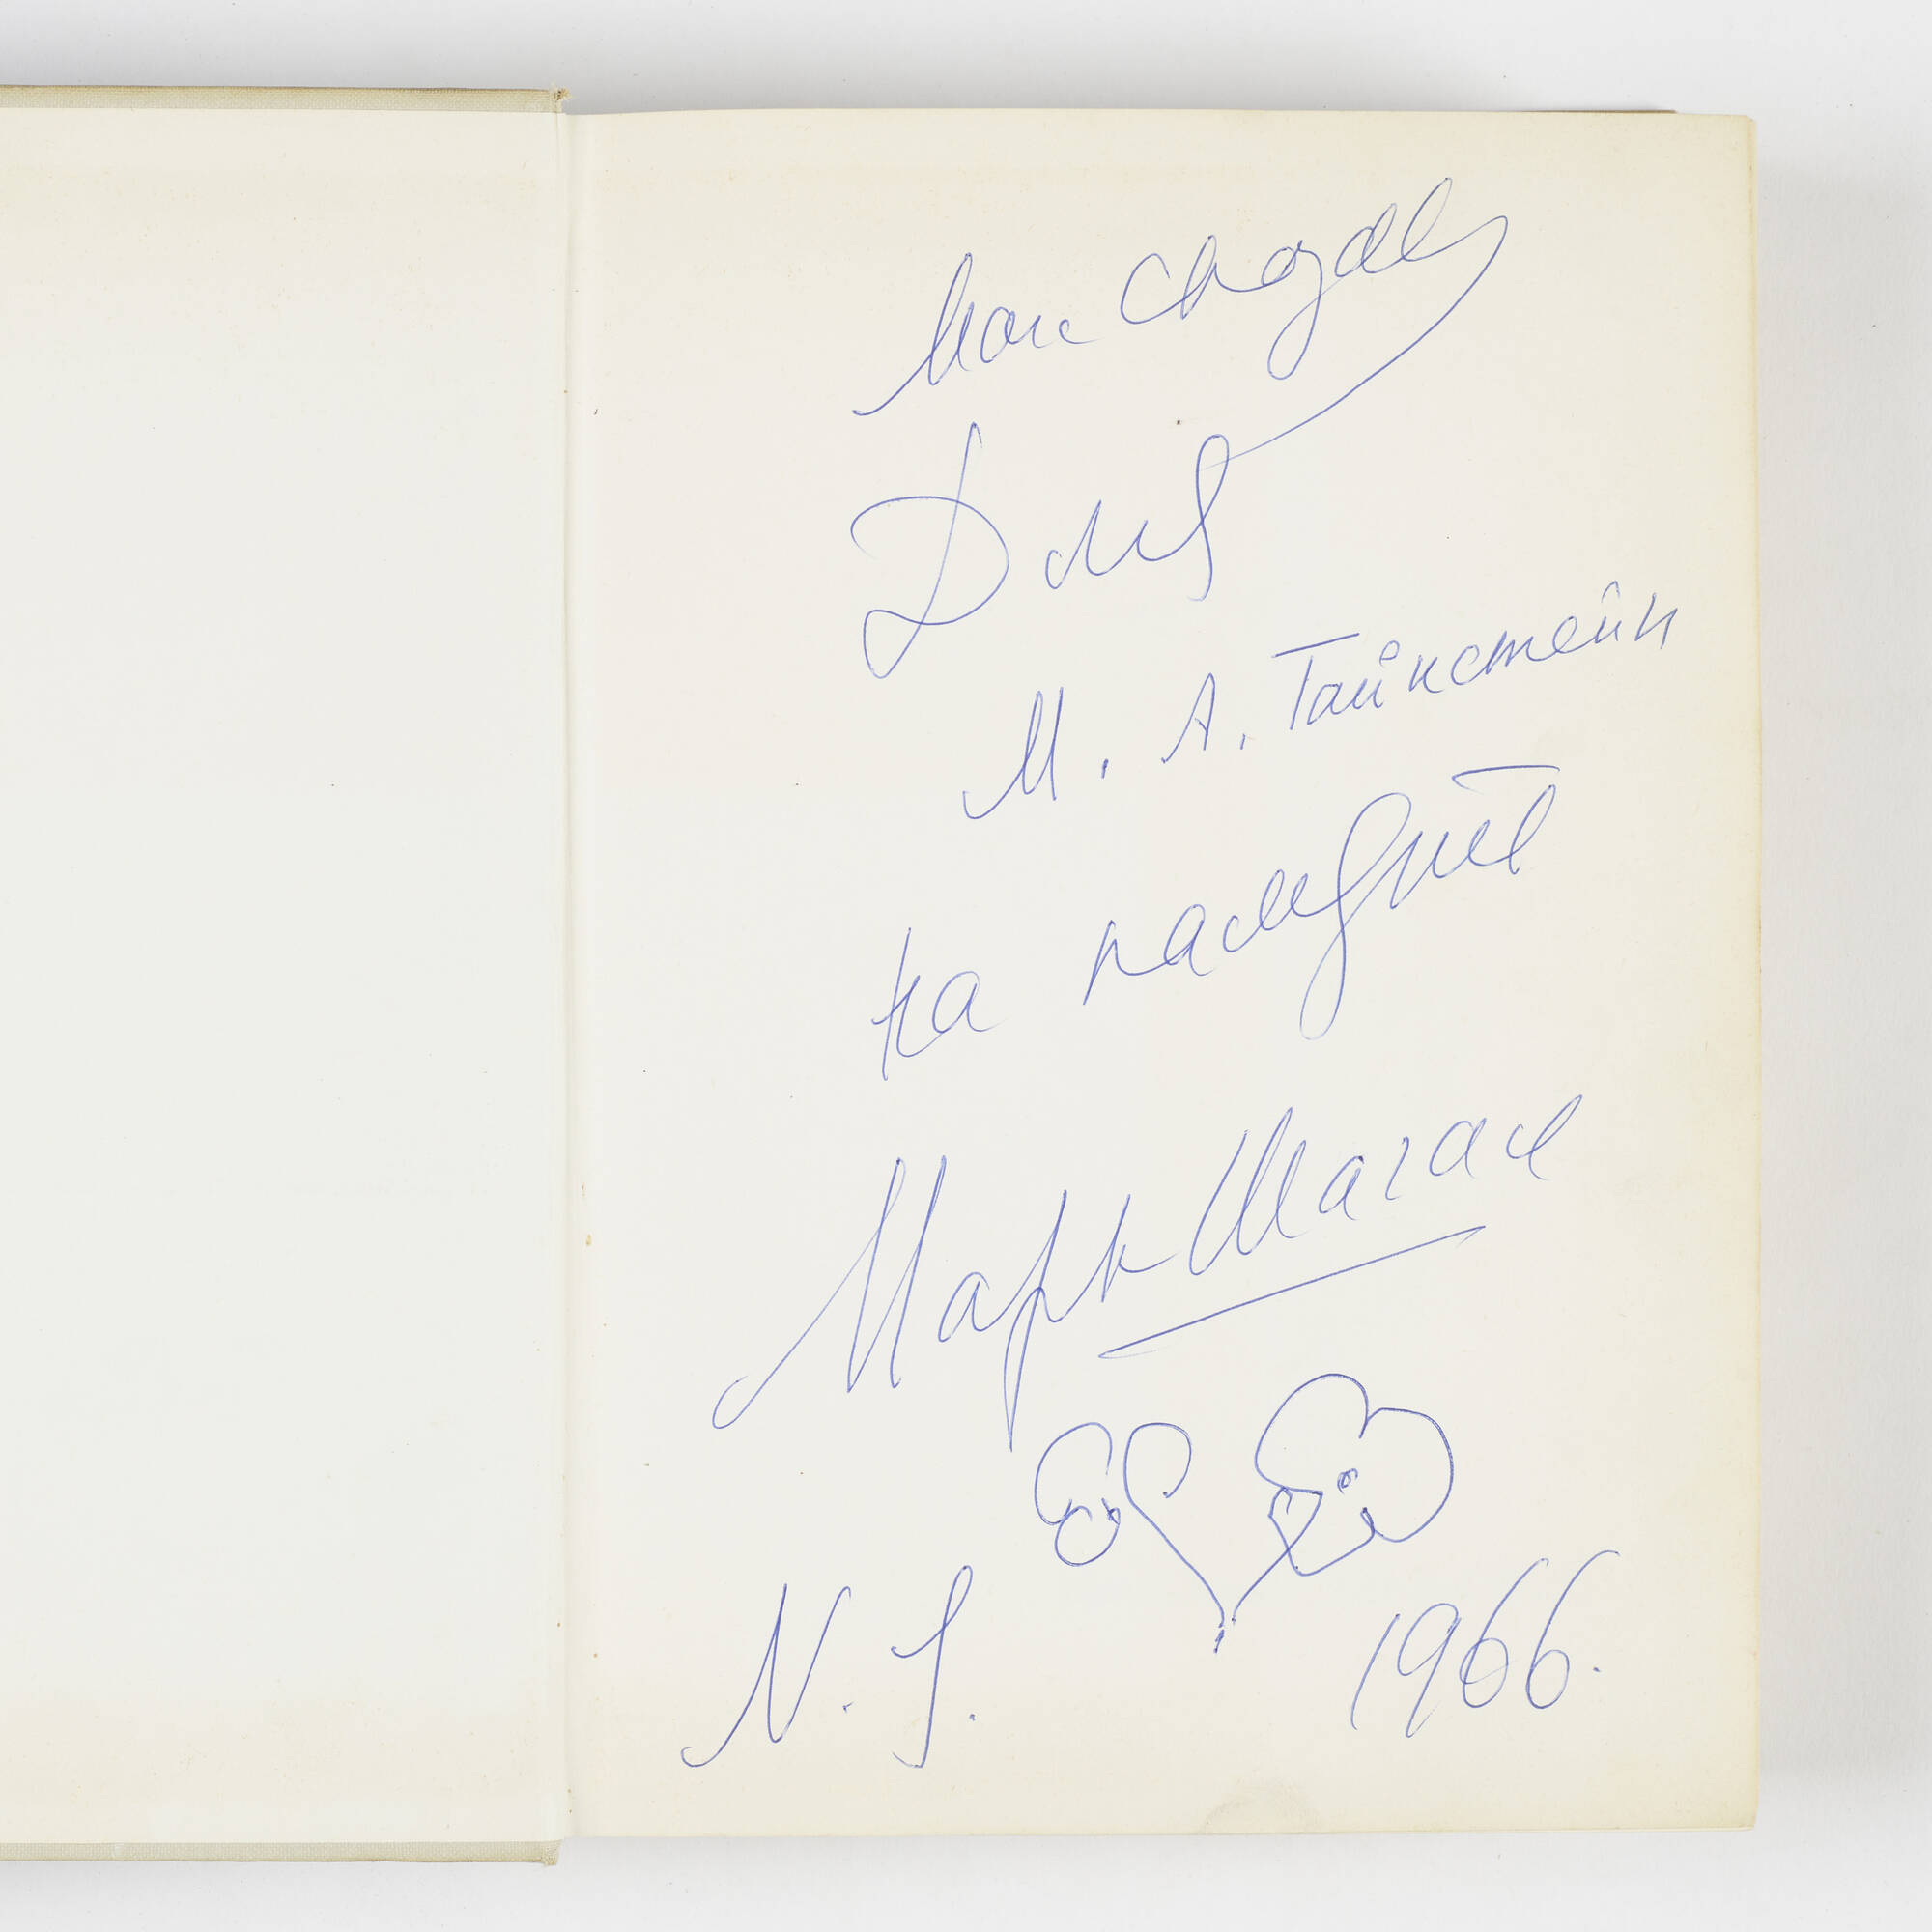 Marc Chagall
Для
М. А. Гайнстейн
на память
Маркъ Шагал
N. J.
1966.